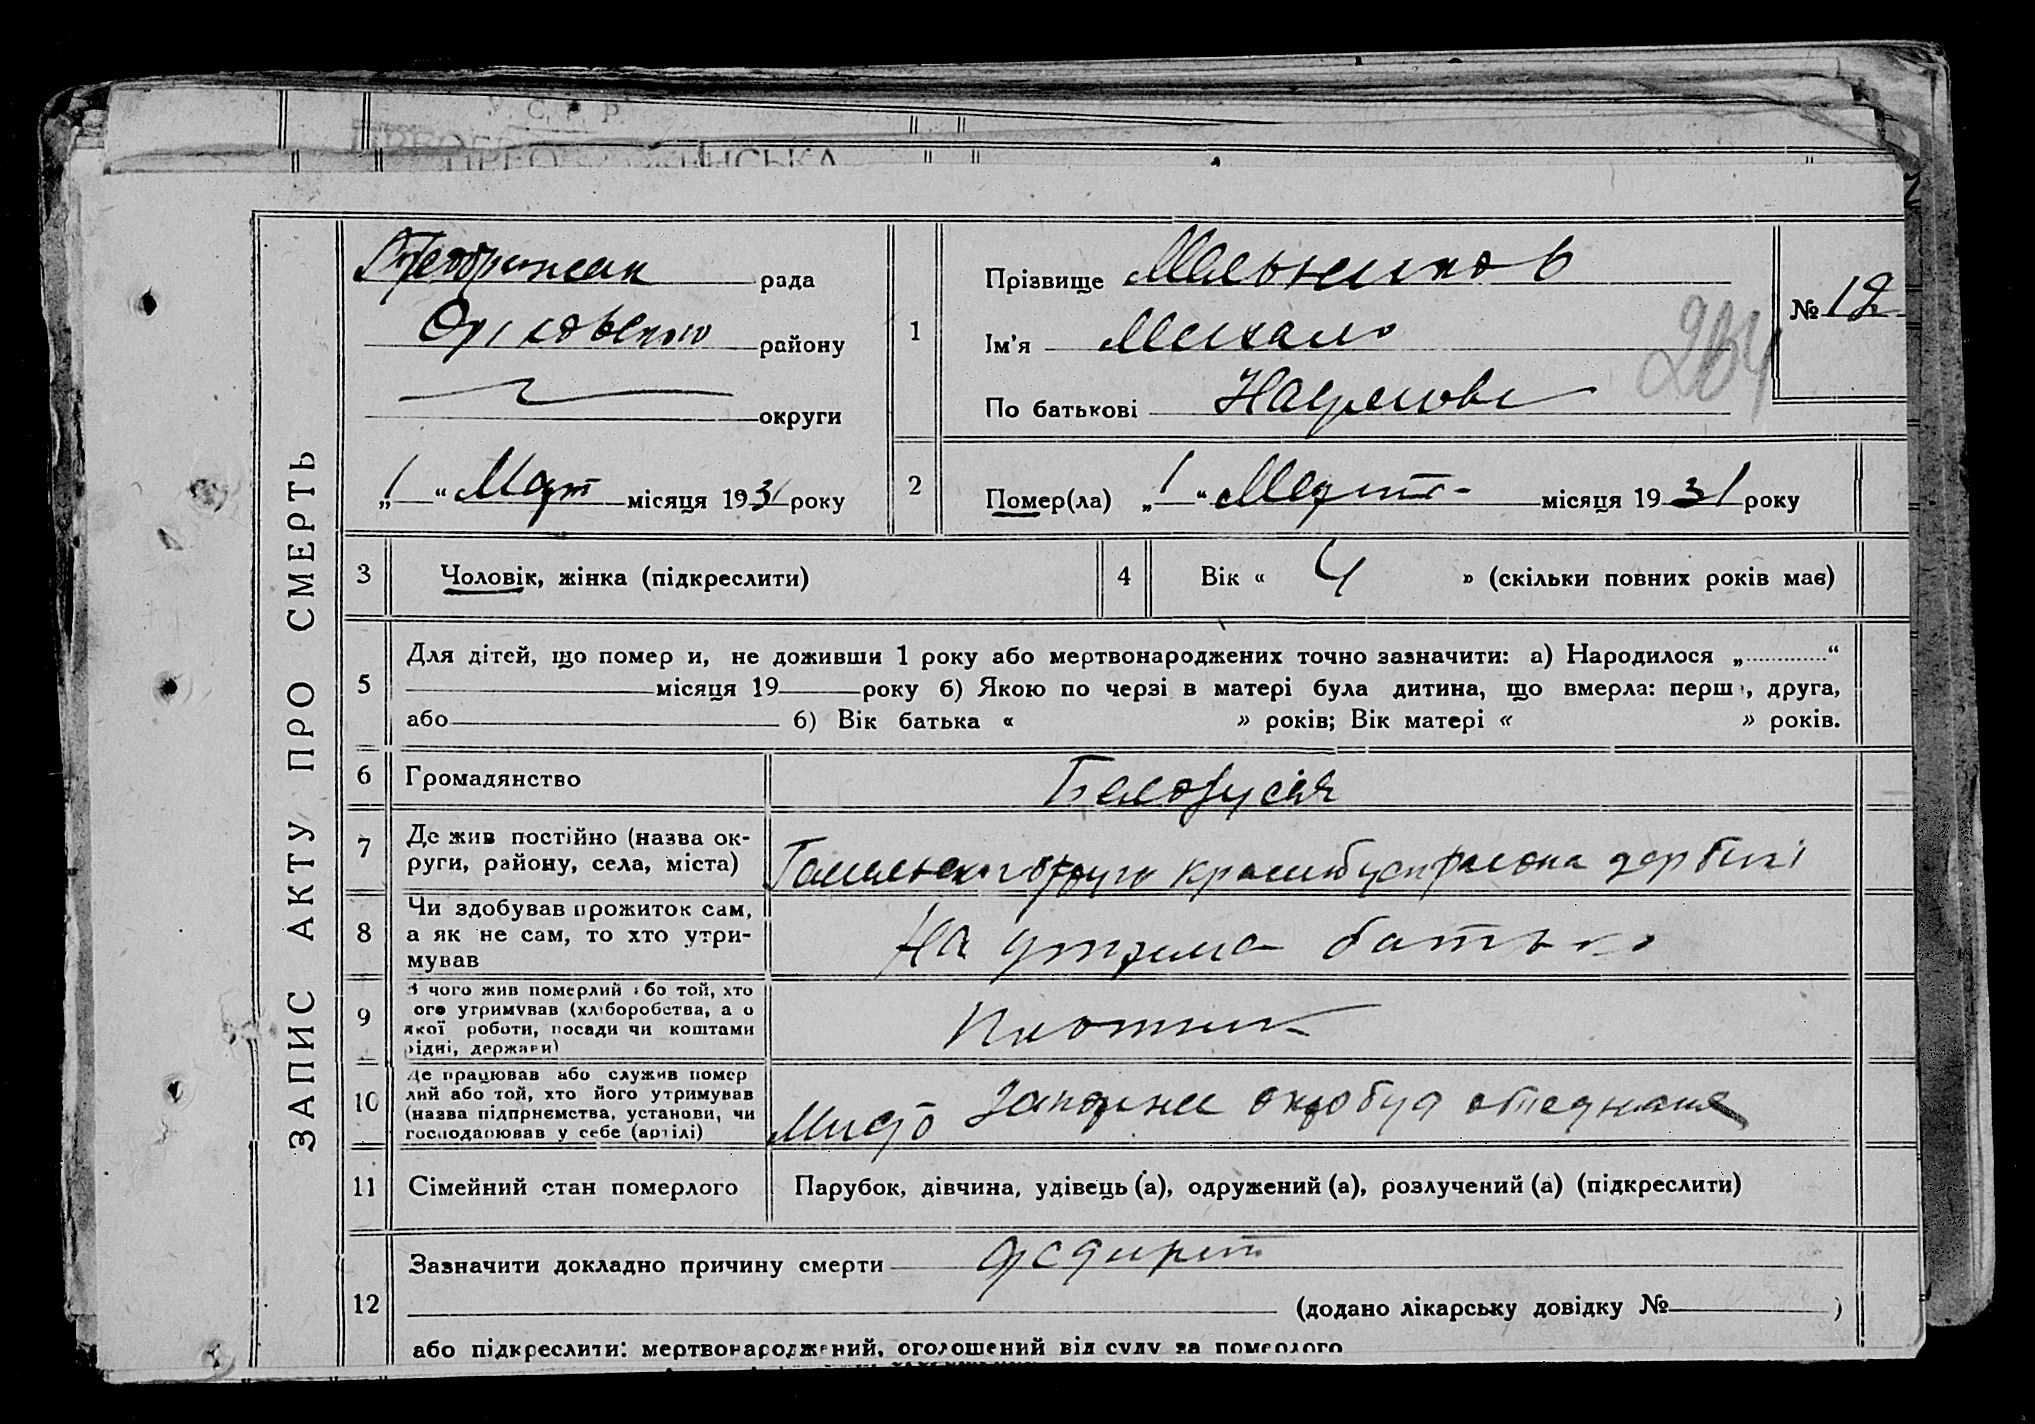 У С Р Р
ЗАПИС АКТУ ПРО СМЕРТЬ
рада
району
округи
„1“ Март місяця 1931 року
1
Прізвище Мельников
Ім'я Михало
По батькові Наумови
№ 12
204
2
Помер(ла) „1“ Март місяця 1931 року
3
Чоловік, жінка (підкреслити)
4
Вік « 4 » (скільки повних років має)
5
Для дітей, що помер и, не доживши 1 року або мертвонароджених точно зазначити: а) Народилося „ “
місяця 19 року б) Якою по черзі в матері була дитина, що вмерла: перш , друга,
або б) Вік батька « » років; Вік матері « » років.
6
Громадянство
Белорусія
7
Де жив постійно (назва ок-
руги, району, села, міста)
8
Чи здобував прожиток сам,
а як не сам, то хто утри-
мував
На утрима батько
9
З чого жив померлий або той, хто
ого утримував (хліборобства, а о
якої роботи, посади чи коштами
рідні, держави)
Плотник
10
Де працював або служив помер
лий або той, хто його утримував
(назва підпрнємства, установи, чи
господарював у себе (артілі)
11
Сімейний стан померлого
Парубок, дівчина, удівець (а), одружений (а), розлучений (а) (підкреслити)
12
Зазначити докладно причину смерти
(додано лікарську довідку № )
або підкреслити: мертвонароджений, оголошений від суду за померлого